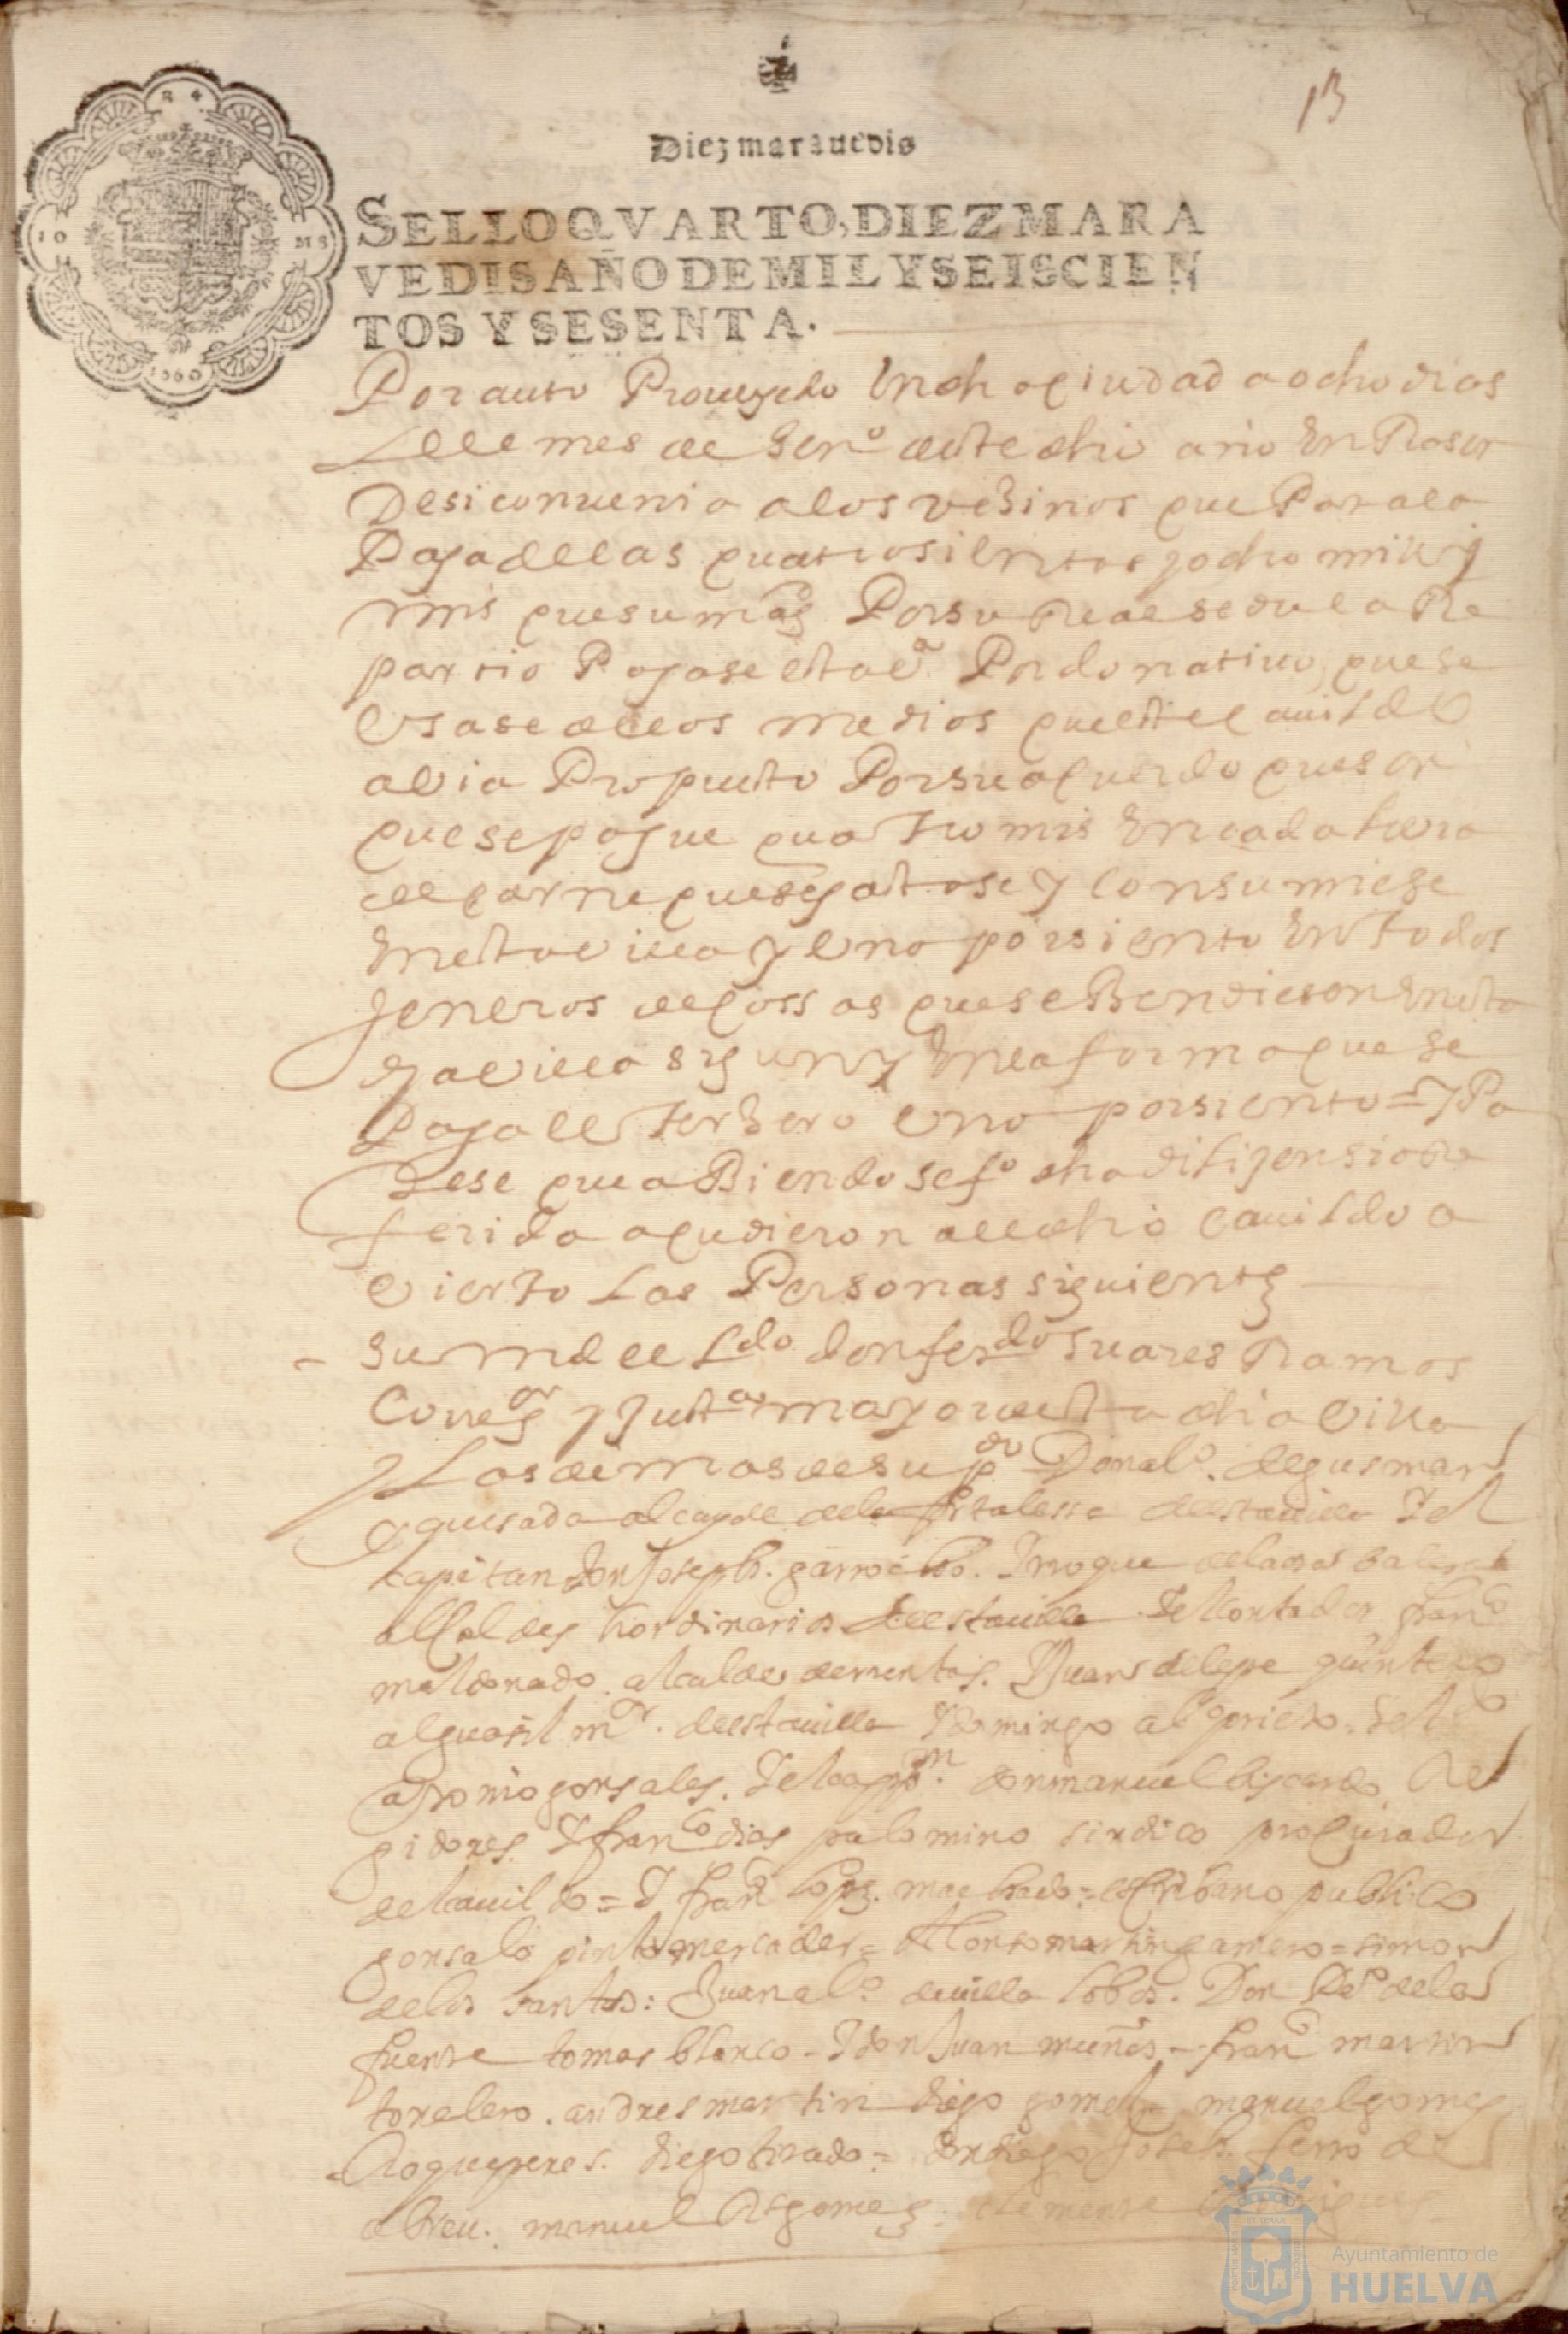 13
Diez marauedis
SELLO QVARTO, DIEZ MARA
VEDIS AÑO DE MIL Y SEISCIEN
TOS Y SESENTA.
24
10 MS
1660
Por auto Proueydo En dha ciudad a ocho dias
del mes de Hen.o deste dho año En Rason
Desi conuenia a los vesinos que Para la
Paga de las quatrosientos y ocho mill
mrs que su mag Por su Real sedula Re
partio Pagase esta va Por donatiuo, que se
Vsase de los medios que este cauildo
avia Propuesto Por su acuerdo que son
que se pague quatro mrs En cada libra
de carne que se gastase y consumiese
En esta villa y Vno por siento En todos
jeneros de cossas que se Bendiesen En esta
dha villa sigun y En la forma que se
Paga el terSero Vno por siento = y Pa
rese que aBiendose fo dha dilijensia Re
ferida acudieron al dho cauildo a
vierto las Personas siguientes
su md el Ldo don ferdo suares Ramos
Correg.or y Just.a mayor desta dha villa
y Las demas de su p.do Don al.o de gusman
quesada alcayde de la fortalessa desta uilla Y el
capitan don Joseph garrocho. Y rroque de la
allcaldes hordinarios desta uilla Y el Contador fran.co
maldonado alcalde de mentas. Y Juan de lepe quintero
alguasil m.or desta uilla Y domingo al.o prieto.
antonio gonsales. Y el cap.n don manuel Re
gidores Y fran.co dias palomino sindico procurador
del cauildo = Y fran.co lopes machado = escribano publico
gonsalo pinto mercader = Alonso martin gamero = simon
de los santos: Juan al.o de uilla lobos. Don de la
fuente tomas blanco - Y don Juan muños - fran.co martin
tonelero. andres martin diego gomes manuel gomes
Roque peres. diego tirado = don diego Joseph fierro de
abreu. manuel gomes: clemente
Ayuntamiento de
HUELVA